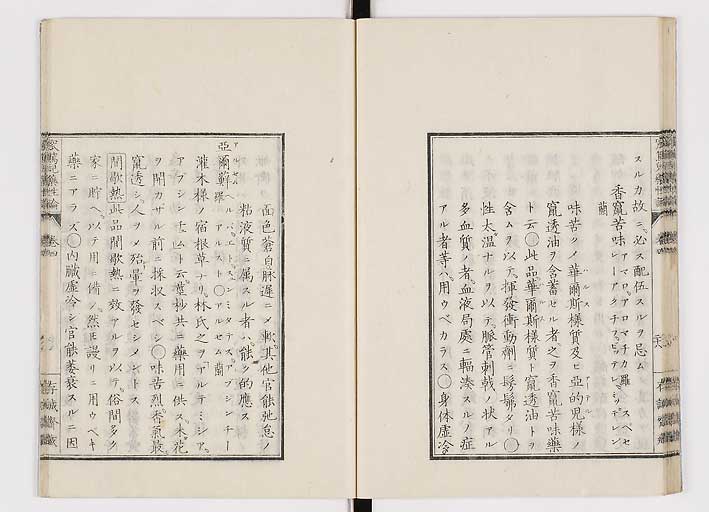 スルカ故ニ必ス配伍スルヲ忌ム
香竄苦味 アマロ、アロマチカ羅 スペセレーアクチフェ、ビッテレ、ミッデレン蘭
味苦クノ華爾斯様質及ヒ亞的児様ノ
竄透油ヲ含蓄セル者之ヲ香竄苦味藥
ト云○此品華爾斯様質ト竄透油トヲ
含ムヲ以テ揮發衝動劑ニ髣髴タリ○
性大温ナルヲ以テ脈管刺戟ノ状アル
多血質ノ者血液局處ニ輻湊スルノ症
アル者等ハ用ウベカラス○身体虚冷
面色蒼白脉遲ニメ軟其他官能弛怠ノ
粘液質ニ属スル者ハ能ク的應ス
亞爾鮮 アルセム ヘルバ、エト、スンミタテス、アブシンチー羅 アルスト○アルセム蘭
灌木様ノ宿根草ナリ林氏之ヲアルテミシア、
アブシンチユムト云葉杪共ニ藥用ニ供ス未花
ヲ開カザル前ニ採収スベシ○味苦烈香氣最
竄透シ人ヲメ殆暈ヲ發セシメントス
間歇熱此品間歇熱ニ效アルヲ以テ俗間多ク
家ニ貯ヘ以テ用ニ備ノ然𪜈謾リニ用ウベキ
藥ニアラズ○内臓虚冷シ官能萎衰スルニ因